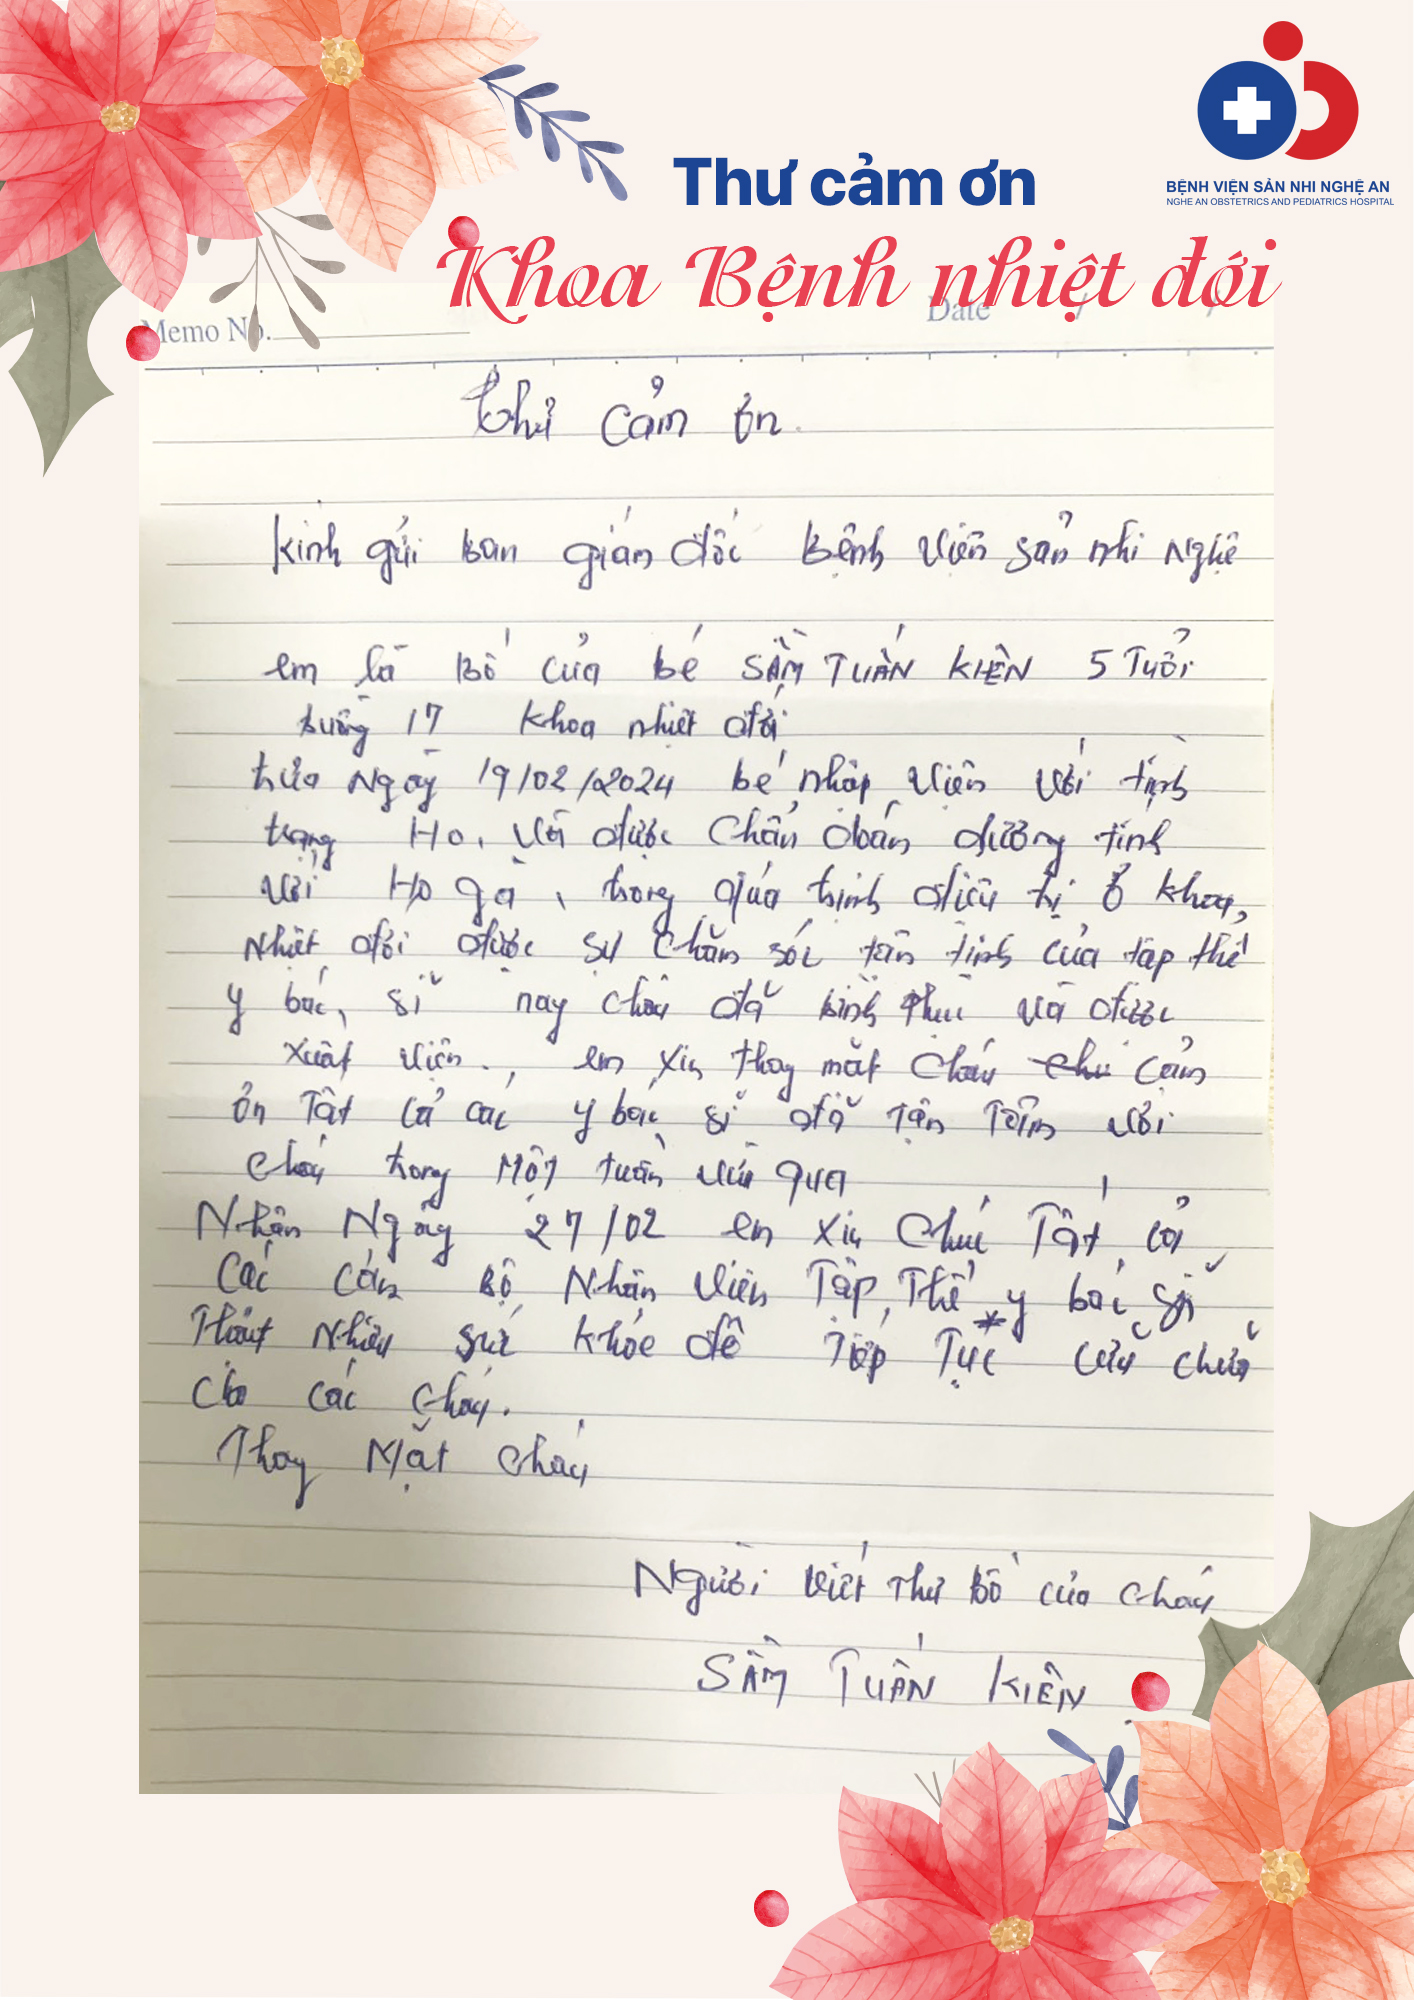 Thư cảm ơn
BỆNH VIỆN SẢN NHI NGHỆ AN
NGHE AN OBSTETRICS AND PEDIATRICS HOSPITAL
Khoa Bệnh nhiệt đới
Memo No.
Date / /
Thư cảm ơn
Kính gửi ban giám đốc Bệnh viện sản nhi Nghệ
em là Bố của bé SẦM TUẤN KIÊN 5 Tuổi
buồng 17 khoa nhiệt đới
trưa Ngày 19/02/2024 bé nhập viện với tình
trạng Ho, và được chẩn đoán dương tính
với Ho gà, trong quá trình điều trị ở khoa,
Nhiệt đới được sự chăm sóc tận tình của tập thể
y bác, sĩ nay cháu đã bình phục và được
xuất viện., em xin thay mặt cháu cảm
ơn Tất cả các y bác sĩ đã Tận Tâm với
cháu trong Một tuần vừa qua
Nhân Ngày 27/02 em xin chúc Tất cả
Các cán Bộ Nhân viên Tập Thể y bác sĩ
Thật Nhiều sức khỏe để Tiếp Tục cứu chữa
cho các cháu.
Thay Mặt cháu
Người viết Thư Bố của cháu
SẦM TUẤN KIÊN